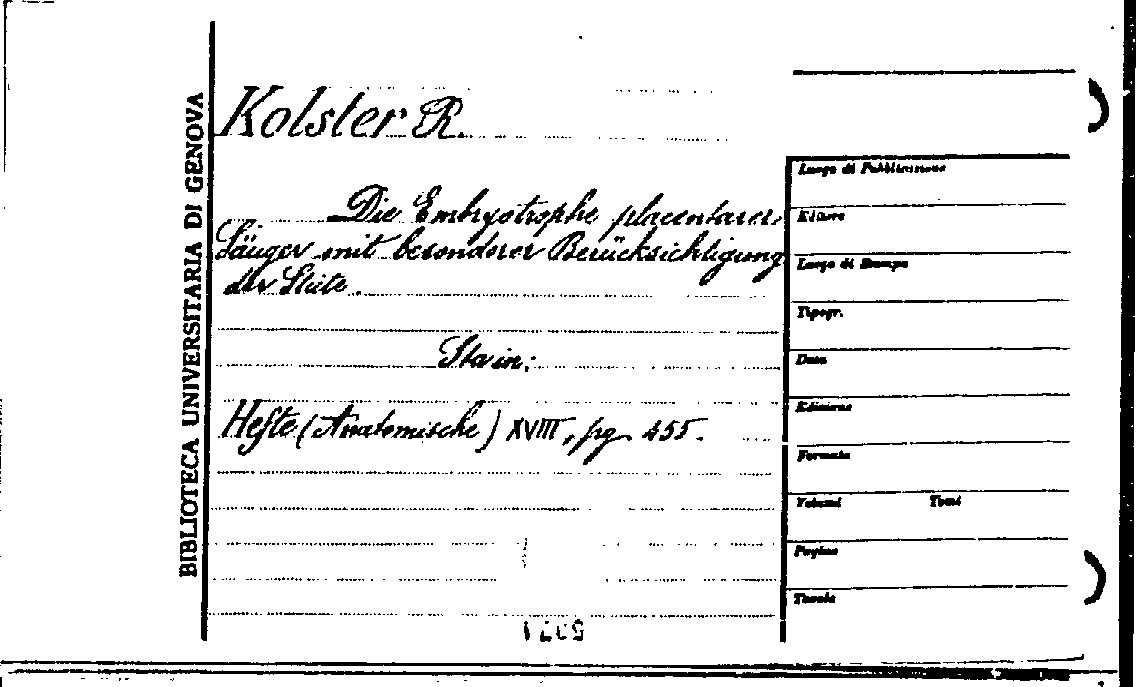 BIBLIOTECA UNIVERSITARIA DI GENOVA
Kolster R.
Die Embryotrophe placentarer
Säuger mit besonderer Berücksichtigung
der Stute.
Sta in:
Hefte (Anatomische) XVIII, pg. 455.
Luogo di Pubblicazione
Editore
Luogo di Stampa
Tipogr.
Data
Edizione
Formato
Volumi Tomi
Pagine
Tavole